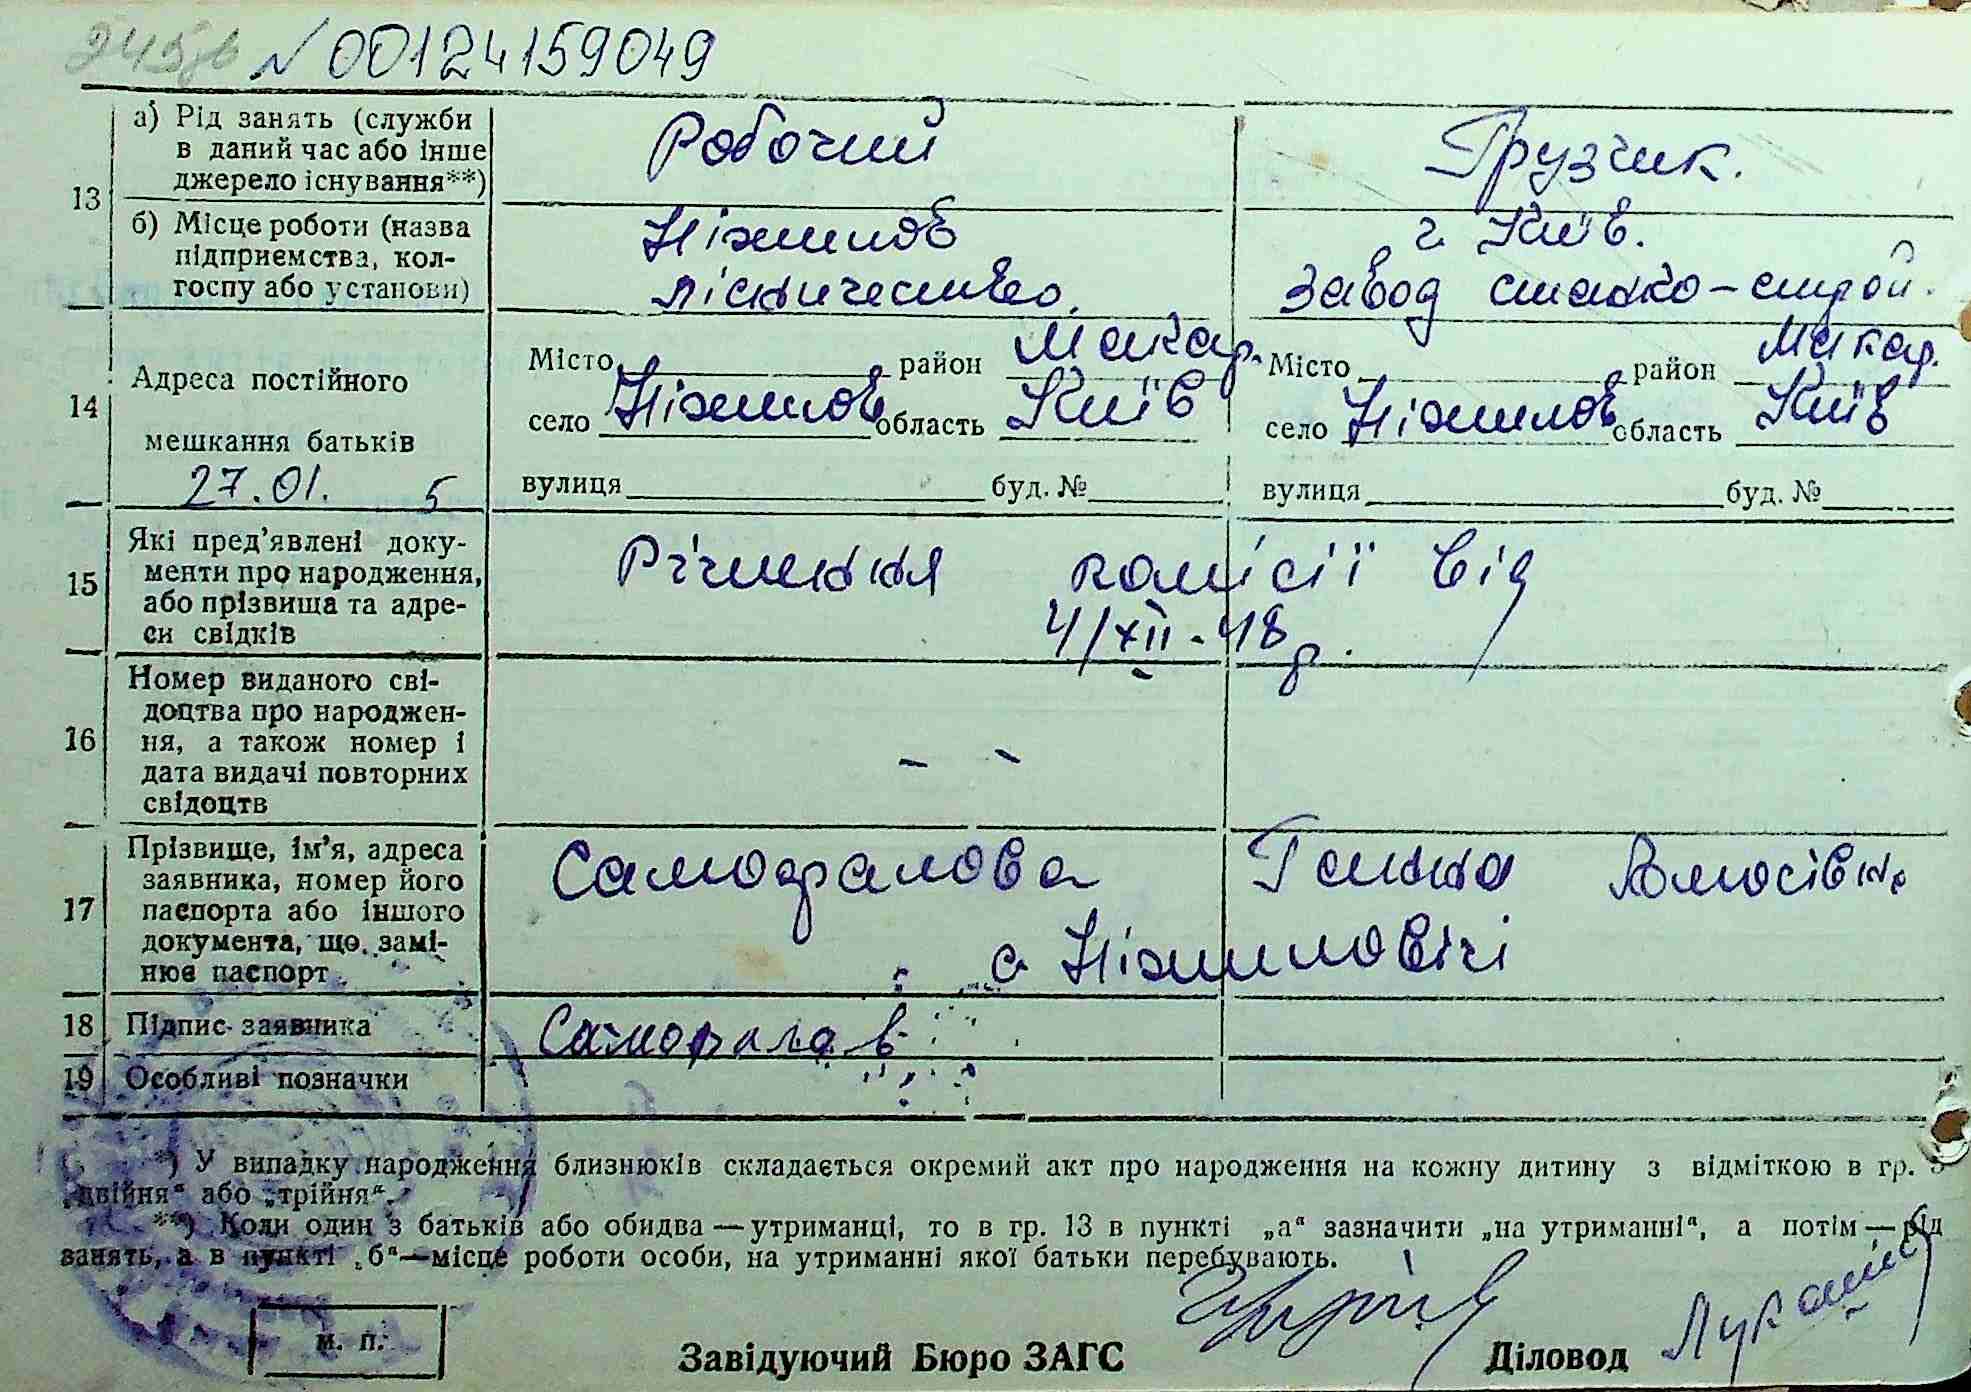 N 00124159049
13
а) Рід занять (служби в даний час або інше джерело існування**)
Робочий
Грузчик.
б) Місце роботи (назва підприємства, колгоспу або установи)
Ніжилов
лісничество.
г. Київ.
Завод станко-строй.
14
Адреса постійного мешкання батьків
27.01. 5
Місто район Макар.
село Ніжилов область Київ
вулиця буд. №
Місто район Макар.
село Ніжилов область Київ
вулиця буд. №
15
Які пред'явлені документи про народження, або прізвища та адреси свідків
Річиння комісії від
4/XII-48 р.
16
Номер виданого свідоцтва про народження, а також номер і дата видачі повторних свідоцтв
– –
17
Прізвище, ім'я, адреса заявника, номер його паспорта або іншого документа, що замінює паспорт
Самофалова Ганна
с Ніжиловічі
18
Підпис заявника
Самофалов
19
Особливі позначки
*) У випадку народження близнюків складається окремий акт про народження на кожну дитину з відміткою в гр. 5
„двійня“ або „трійня“.
**) Коли один з батьків або обидва — утриманці, то в гр. 13 в пункті „а“ зазначити „на утриманні“, а потім — рід
занять, а в пункті „б“—місце роботи особи, на утриманні якої батьки перебувають.
м. п.
Завідуючий Бюро ЗАГС
Діловод